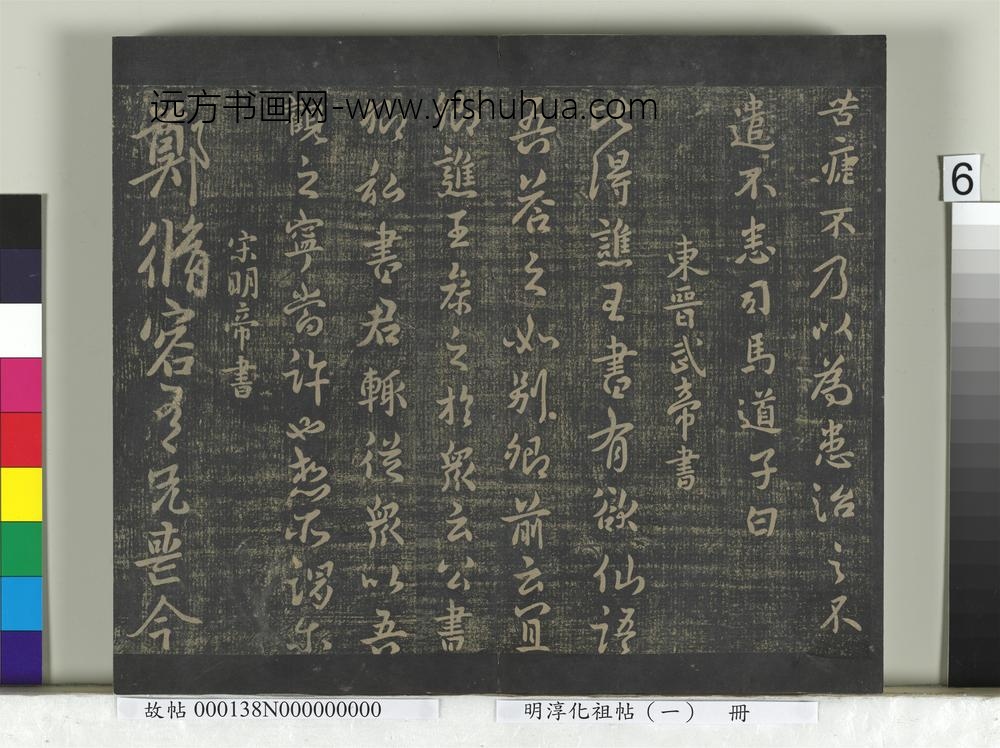 远方书画网-www.yfshuhua.com
苦瘧不乃以為患治之不
遣不恚司馬道子白
東晉武帝書
得譙王書有欲仙語
吾答之如別卿前云宜
譙王參之於眾云公書
私書君輒從眾以吾
觀之寧當許也想不
宋明帝書
鄭脩容兄喪今
6
故帖 000138N000000000
明淳化祖帖(一) 冊